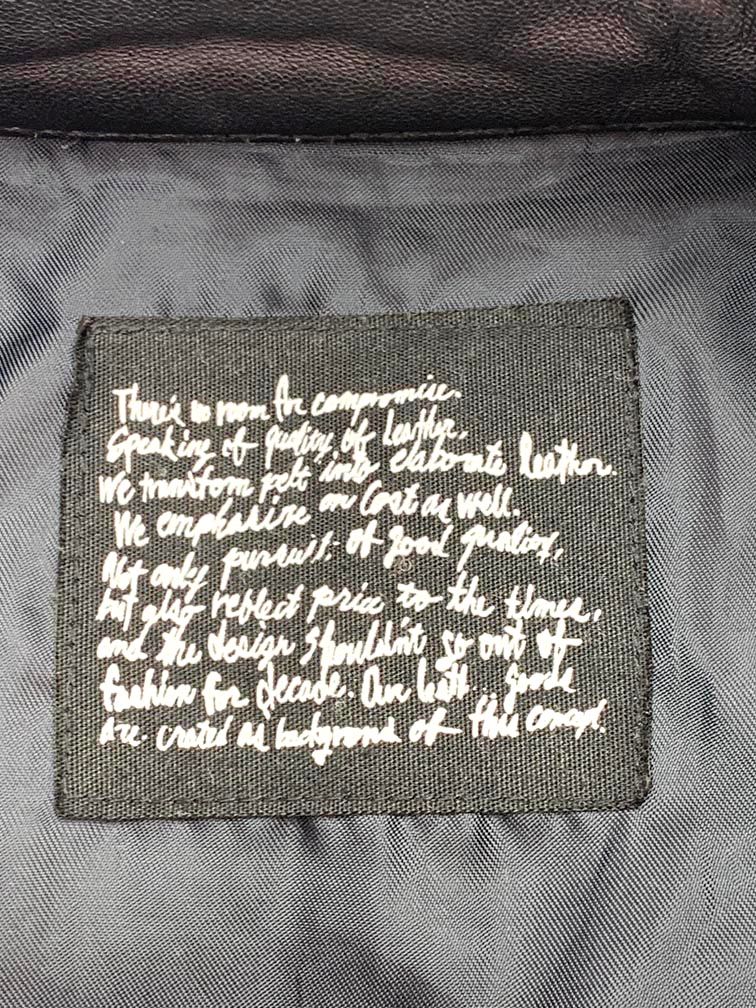 There's no room for compromise.
Speaking of quality of leather,
We transform pelt into elaborate leather.
We emphasize on Cost as well.
Not only pursuit of good quality,
but also reflect price to the times,
and the design shouldn't go out of
fashion for decade. Our leath... goods
are created as background of this concept.